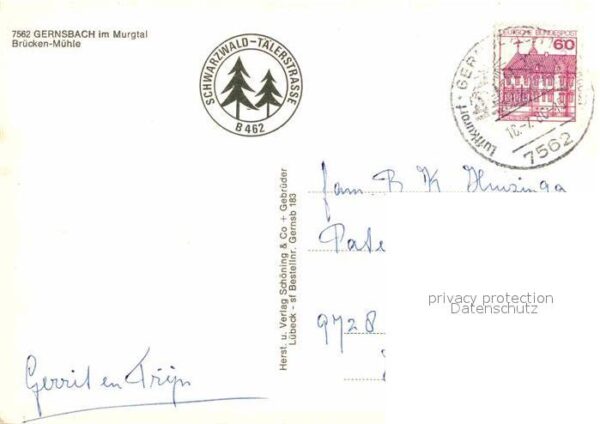 7562 GERNSBACH im Murgtal
Brücken-Mühle
SCHWARZWALD-TÄLERSTRASSE
B 462
DEUTSCHE BUNDESPOST
60
Luftkurort · GER
7562
Herst. u. Verlag Schöning & Co + Gebrüder
Lübeck - st Bestellnr. Gernsb 183
fam. R K Huizinga
Pate
9728
privacy protection
Datenschutz
Gerrit en Trijn